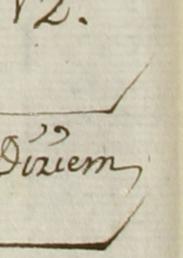 V2.
Diziem,